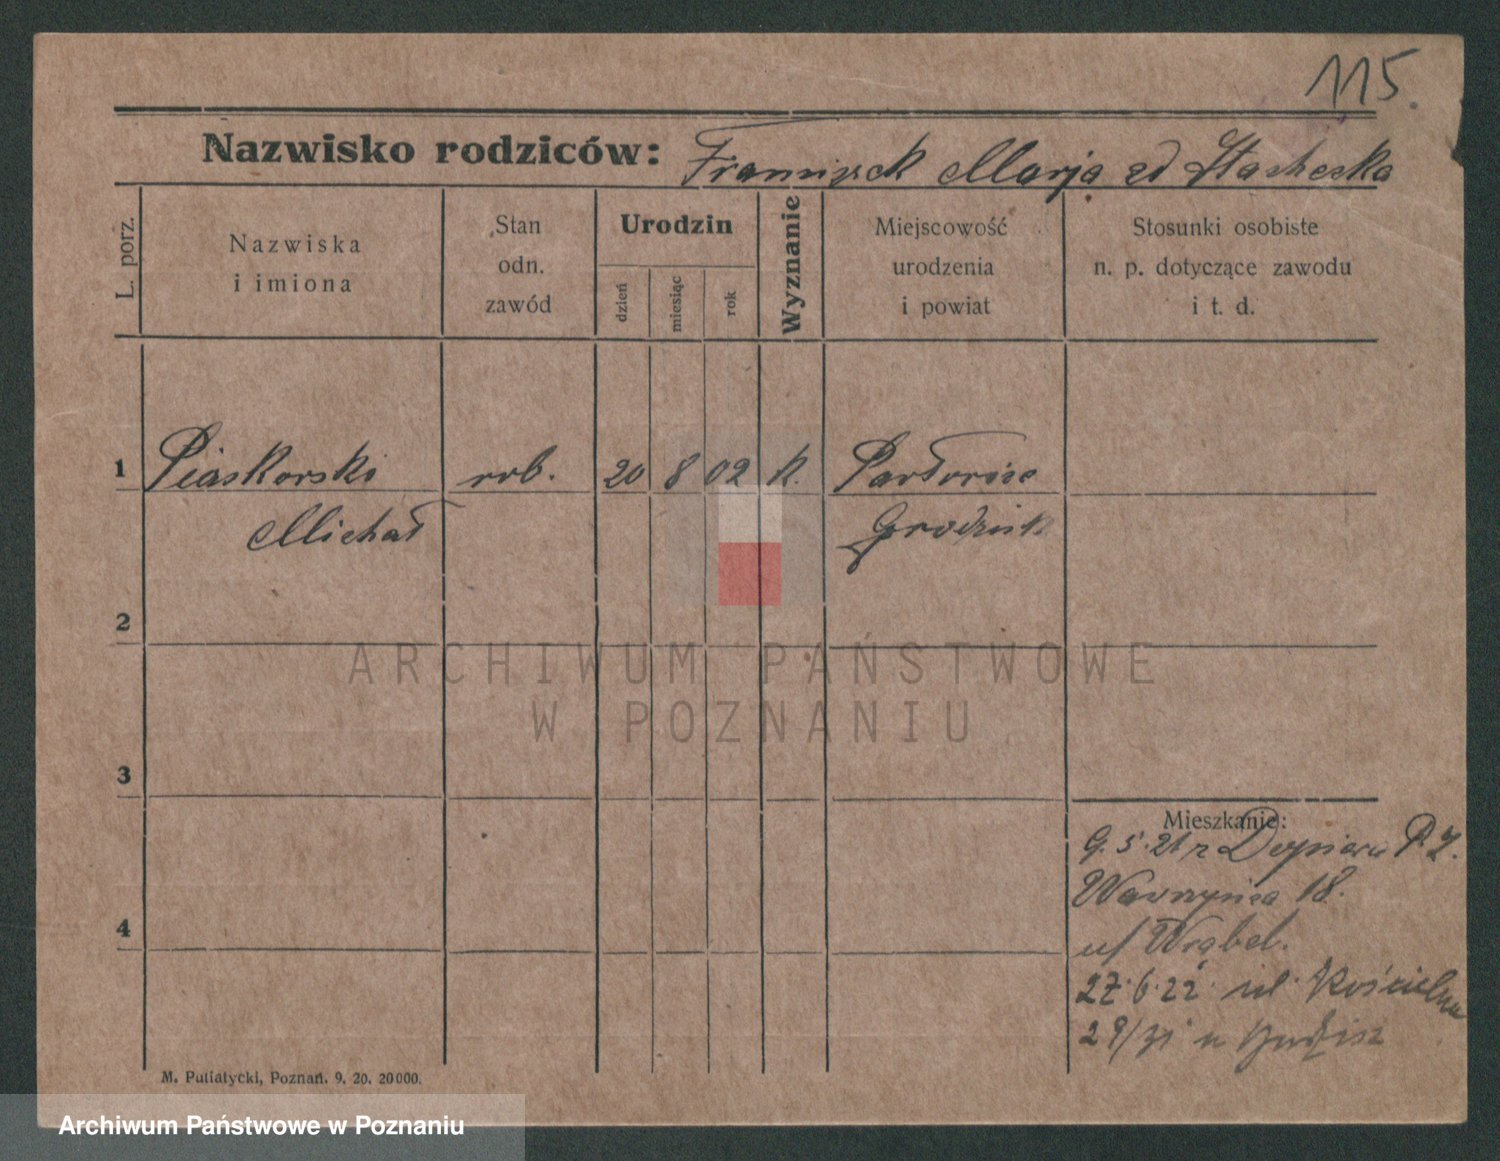 115.
Nazwisko rodziców: Franciszek Marja zd Stacheska
L. porz.
Nazwiska
i imiona
Stan
odn.
zawód
Urodzin
dzień
miesiąc
rok
Wyznanie
Miejscowość
urodzenia
i powiat
Stosunki osobiste
n. p. dotyczące zawodu
i t. d.
1 Piaskorski rob. 20 8 02 k.
Michał Grodzisk
2
3
4
Mieszkanie:
9. 5. 21 z
Wawrzyńca 18.
u/ Wrąbel.
27. 6. 22 ul. Kościelna
M. Putiatycki, Poznań. 9. 20. 20000.
ARCHIWUM PAŃSTWOWE
W POZNANIU
Archiwum Państwowe w Poznaniu